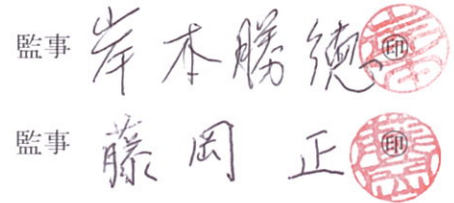 監事 岸本勝徳 ㊞
監事 藤岡 正 ㊞